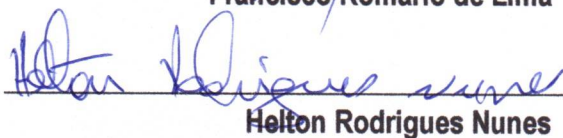 Francisco Romário de Lima
Helton Rodrigues Nunes
Helton Rodrigues Nunes